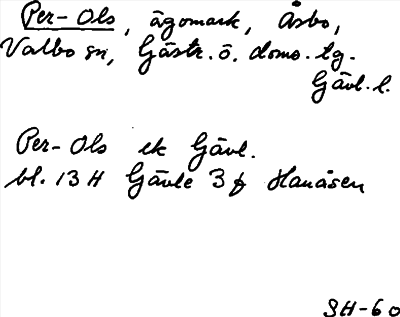 Per-Ols, ägomark, Åsbo,
Valbo sn, Gästr. ö. doms. tg.
Gävl. l.
Per-Ols ek Gävl.
bl. 13 H Gävle 3 f Hanåsen
SH-60